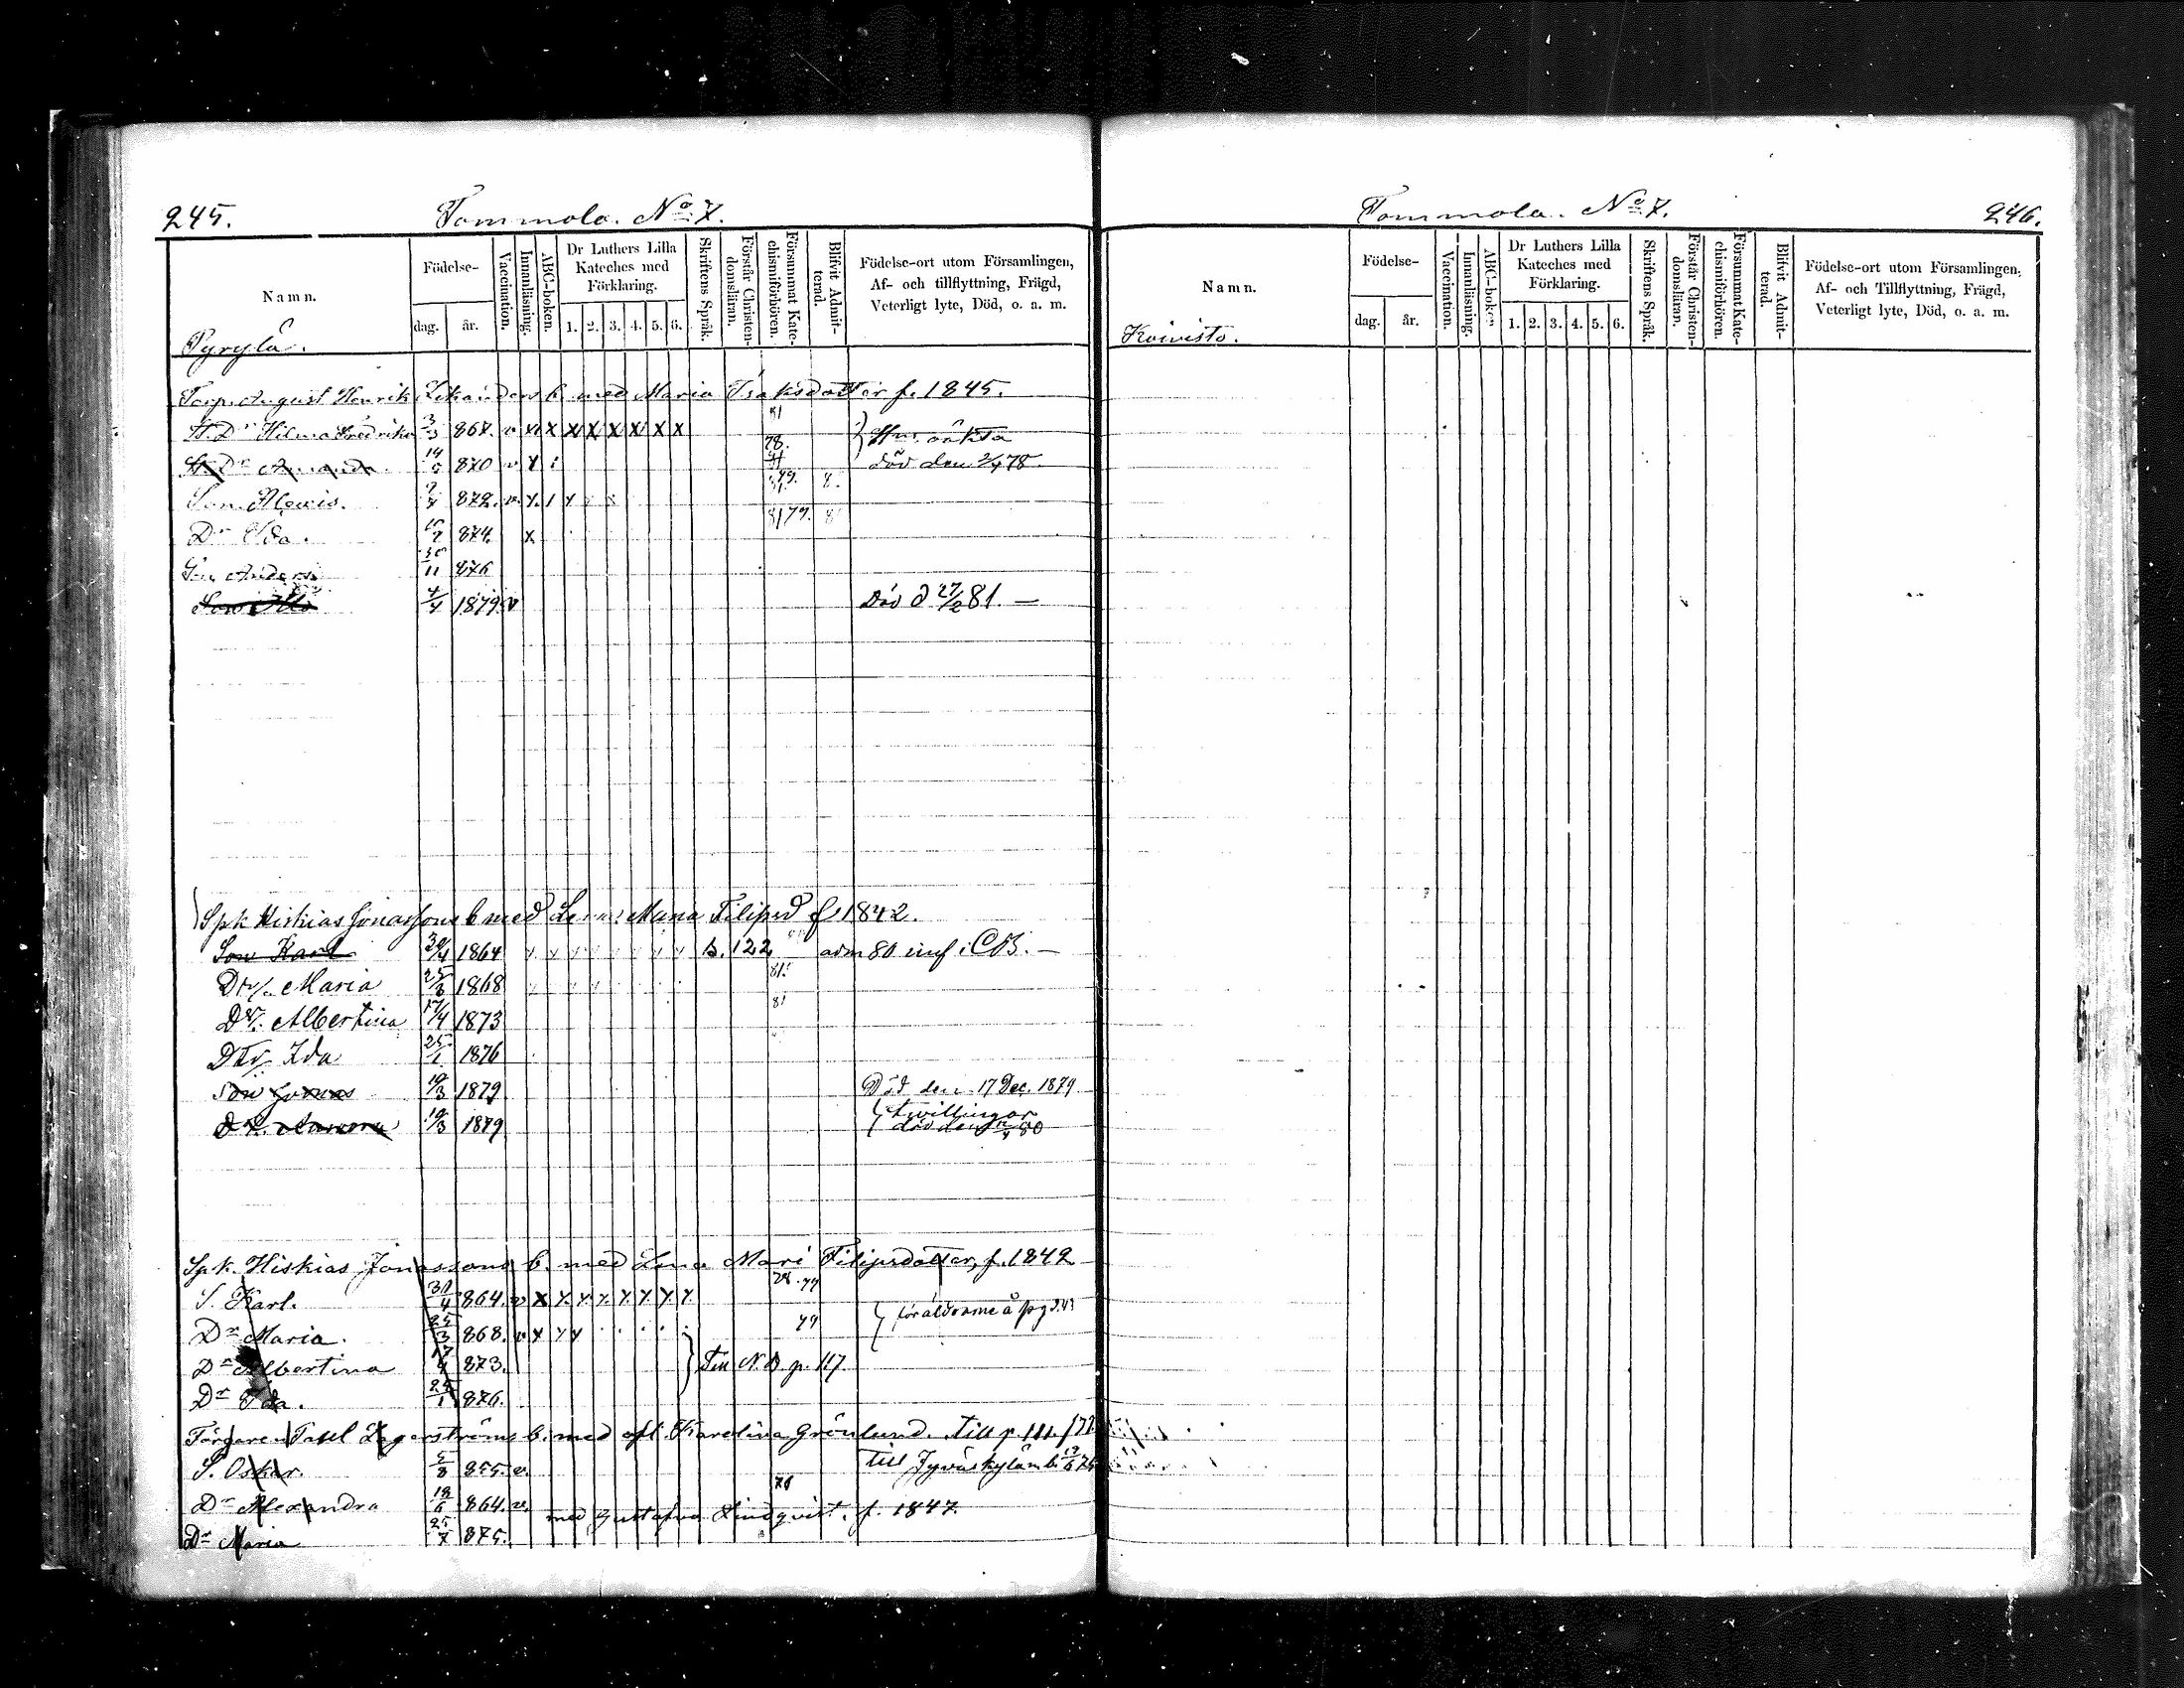 245. Tommola. No 7.
Namn.
Födelse-
dag. år.
Vaccination.
Innanläsning.
ABC-boken.
Dr Luthers Lilla
Kateches med
Förklaring.
1. 2. 3. 4. 5. 6.
Skriftens Språk.
Förstår Christen-
domsläran.
Försummat Kate-
chismiförhören.
Blifvit Admit-
terad.
Födelse-ort utom Församlingen,
Af- och tillflyttning, Frägd,
Veterligt lyte, Död, o. a. m.
Pyrylä.
Torp. August Henrik b. med Maria Isaksdotter f. 1845.
Hilma Fredrika 3/3 867. v x x x x x x x x 81
Dr Amanda 870 v x 78. död den 2/4 78
Son 872. v. x. 1 x 79. 8.
Dr Ida. 874. x 81 79. 8
Son Anders 30/11 876
Son 4/4 1879. v Död d 27/2 81. —
Spk Hiskias Jonassons b med Lena Maria Filipsd f 1842.
Son Karl 30/4 1864 b. 122 adm 80 inf i CB. —
Dtr. Maria 25/3 1868 81.
Dtr. Albertina 17/4 1873 81
Dtr Ida 25/1 1876
Son Jonas 19/3 1879 Död den 17 Dec. 1879
Dtr. 19/3 1879 tvillingar
död den 80
Spk. Hiskias Jonassons b. med Lena Mari Filipsdotter, f. 1842
S. Karl. 30/4 864. v x x x x x x x x 78. 79
Dr Maria. 25/3 868. v x x x 79 föräldrarne å pg
Dr Albertina 17/4 873. Till N. B p. 117
Dr Ida. 25/1 876.
Färgaren b. med afl. Karolina Grönlund. Till p. 111.
S. Oskar. 5/8 855. v. till Jyväskylä
Dr Alexandra 18/6 864. v. 78
med Gustafva Lindqvist. f. 1847.
Dr Maria 25/7 875.
Tommola. No 7. 246.
Namn.
Födelse-
dag. år.
Vaccination.
Innanläsning.
ABC-boken
Dr Luthers Lilla
Kateches med
Förklaring.
1. 2. 3. 4. 5. 6.
Skriftens Språk.
Förstår Christen-
domsläran.
Försummat Kate-
chismiförhören.
Blifvit Admit-
terad.
Födelse-ort utom Församlingen,
Af- och Tillflyttning, Frägd,
Veterligt lyte, Död, o. a. m.
Koivisto.